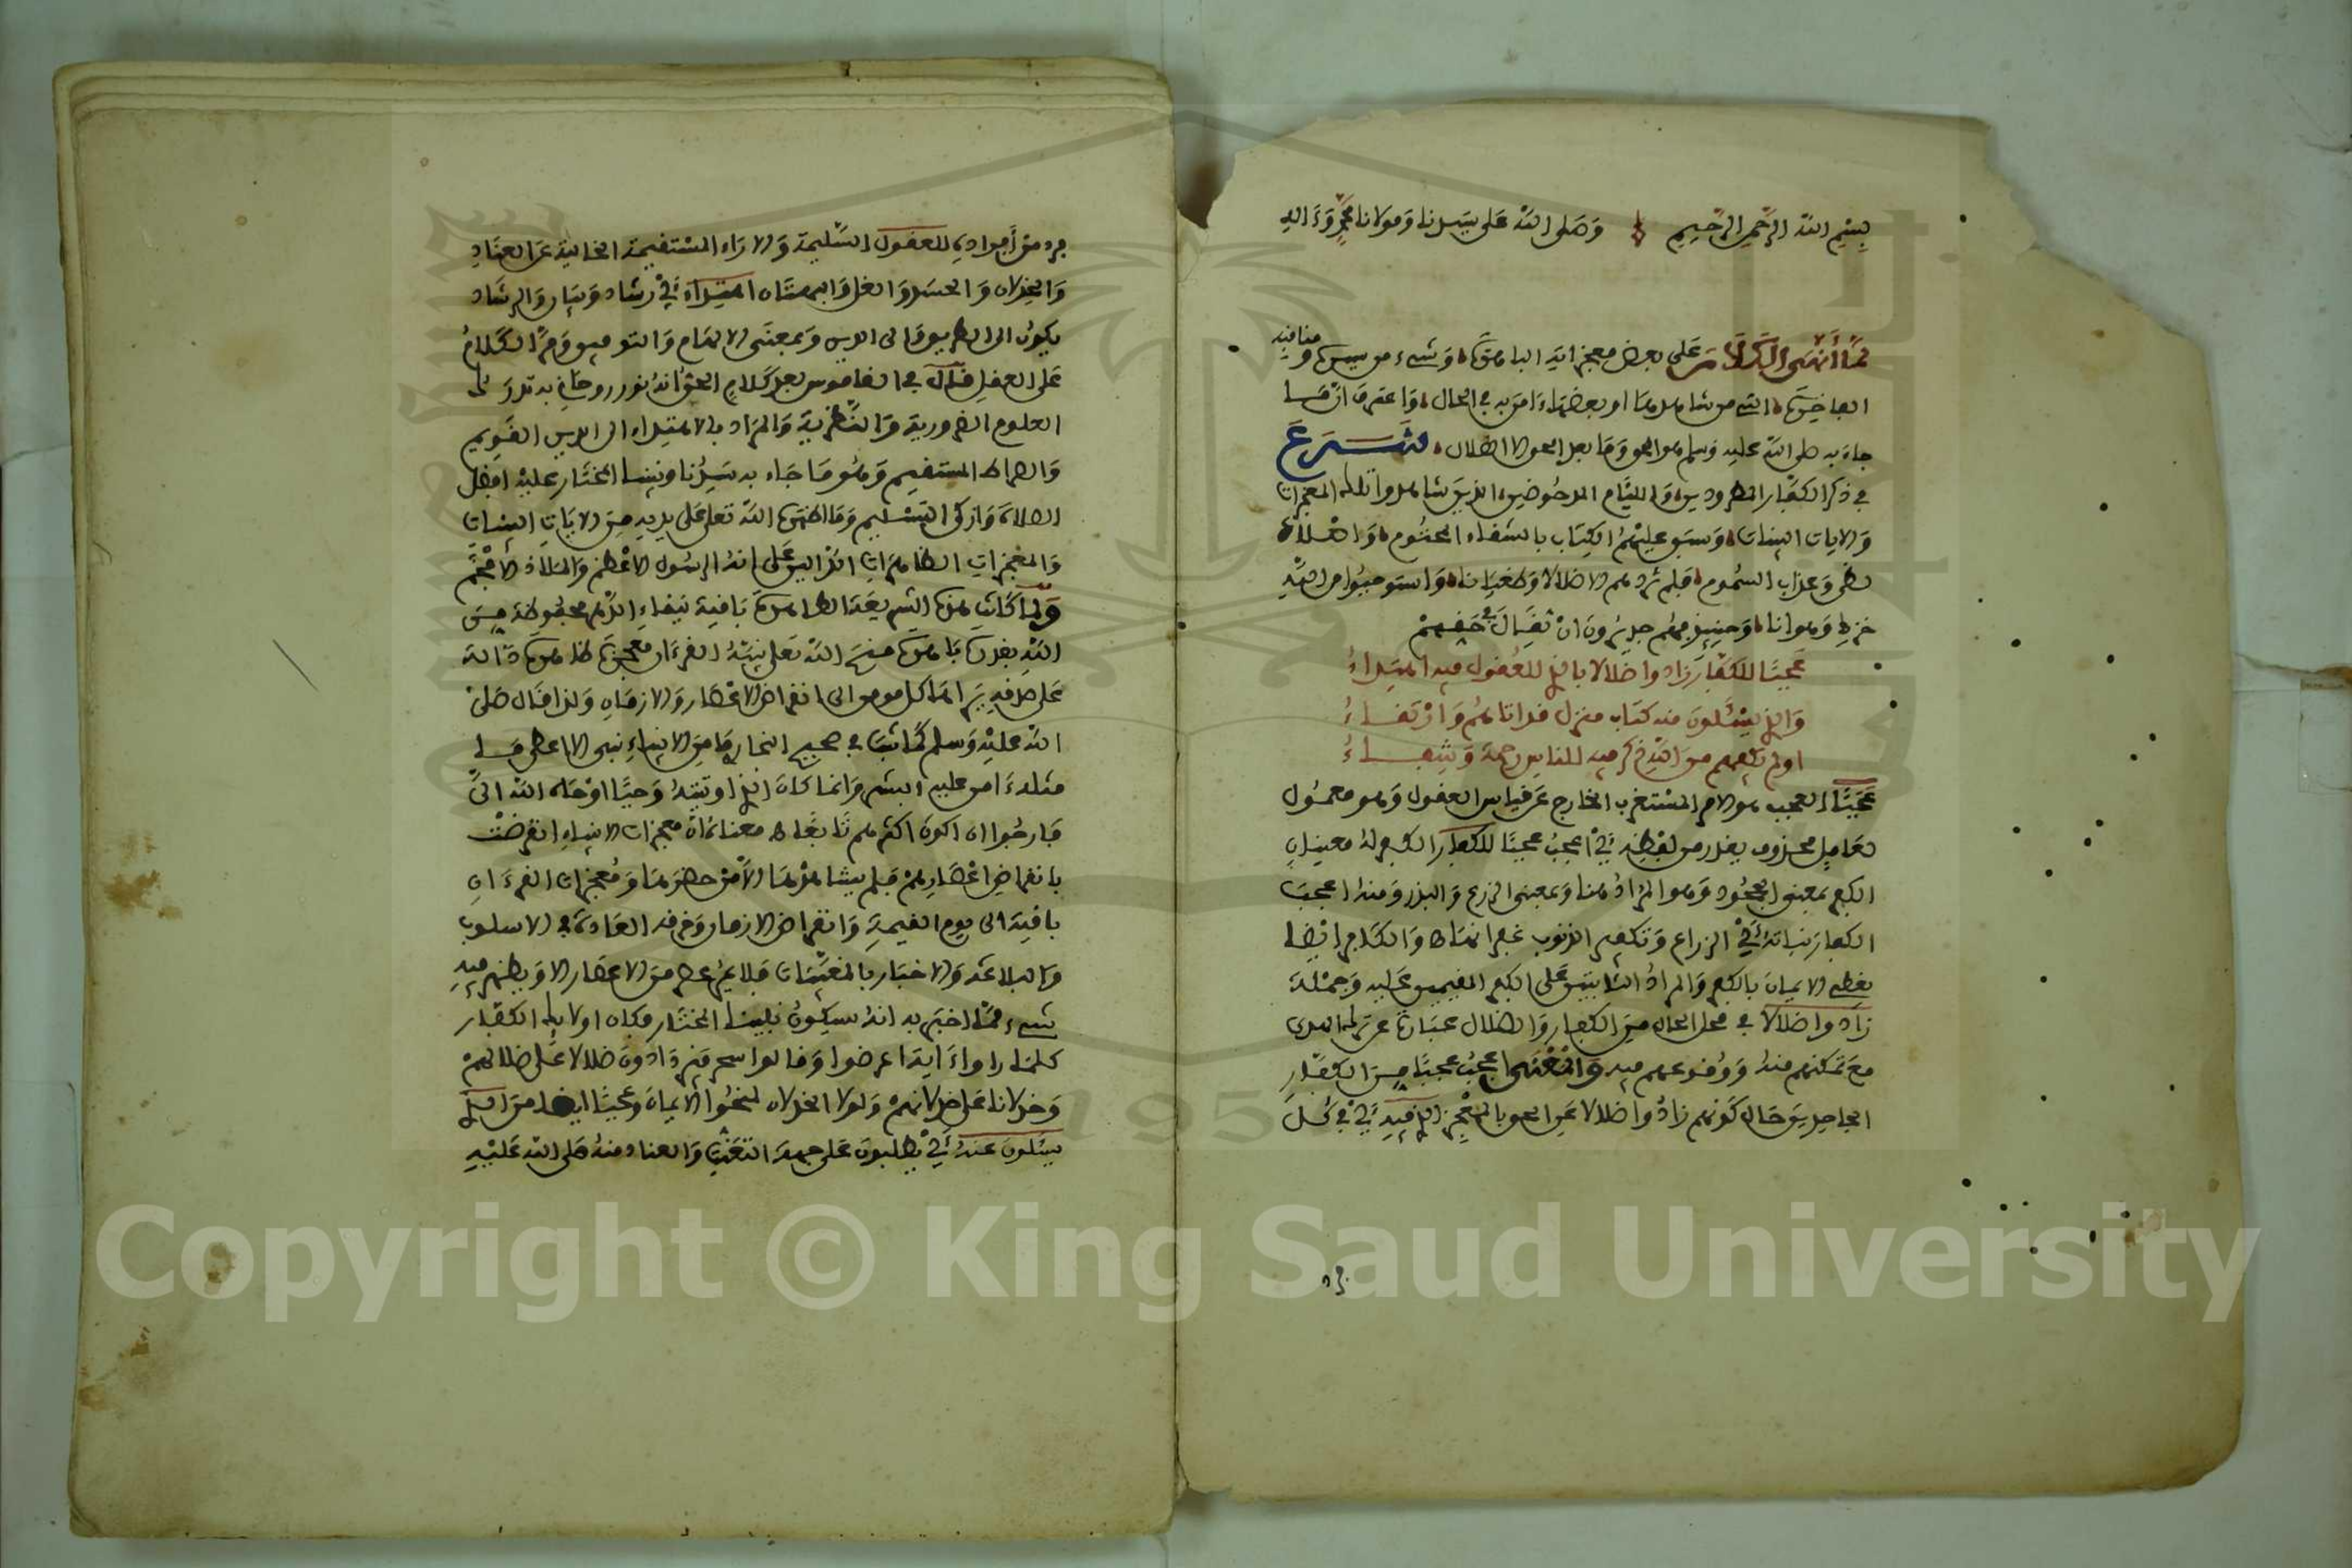 بسم الله الرحمن الرحيم وصلى الله على سيدنا ومولانا محمد وءاله
لما أنهى الكلام على بعض معجزاته الباهرة وشيء من سيره ومناقبه
الفاخرة التي من شاهدها او بعضها ءامن به في الحال واعترف ان ما
جاء به صلى الله عليه وسلم هو الحق وما بعد الحق الا الضلال شرع
في ذكر الكفار المطرودين والليام المدحوضين الذين شاهدوا تلك المعجزات
والايات البينات وسبق عليهم الكتاب بالشقاء المحتوم
لظى وعذاب السموم فلم تزدهم الا ضلالا وطغيانا واستوجبوا من الله
خزيا وهوانا وحينيذ فهم جديرون ان يقال في حقهم
عجبا للكفار زادوا ضلالا بالذي للعقول فيه اهتداء
والذي يسئلون منه كتاب منزل قد اتاهم وارتقاء
اولم يكفهم من الله ذكر فيه للناس رحمة وشفاء
عجبا العجب هو الامر المستغرب الخارج عن قياس العقول وهو معمول
لعامل محذوف يقدر من لفظه أي اعجب عجبا للكفار الكفر له معنيان
الكفر بمعنى الجحود وهو المراد هنا وبمعنى الزرع والبذر ومنه اعجب
الكفار نباته أي الزراع وتكفير الذنوب غفرانها والكافر ايضا
يغطي الايمان بالكفر والمراد الثابتين على الكفر المقيمين عليه وجملة
زادوا ضلالا في محل الحال من الكفار والضلال عبارة عن ترك الهدى
مع تمكنهم منه ووقوعهم فيه والمعنى اعجب عجبا من الكفار
الجاحدين حال كونهم زادوا ضلالا عن الحق بالمعجز الذي فيه أي في كل
فرد
فرد من أفراده للعقول السليمة والاراء المستقيمة الخالية عن العناد
والخذلان والحسد والغل والبهتان اهتداء أي رشاد وبيان والرشاد
يكون الى الطريق والى الدين وبمعنى الالهام والتوفيق ومر الكلام
على العقل قال في القاموس بعد كلام الحق انه نور روحاني به تدرك
العلوم الضرورية والنظرية والمراد بالاهتداء الى الدين القويم
والصراط المستقيم وهو ما جاء به سيدنا ونبينا المختار عليه افضل
الصلاة وازكى التسليم وما اظهره الله تعلى على يديه من الايات البينات
والمعجزات الظاهرات الدالين على انه الرسول الاعظم والملاذ الافخم
ولما كانت هذه الشريعة الطاهرة باقية ببقاء الدهر محفوظة من
الله بقدرة باهرة منح الله تعلى نبيه القرءان معجزة ظاهرة دالة
على صدقه يراها كل موفق الى انقراض الاعصار والازمان ولذا قال صلى
الله عليه وسلم كما ثبت في صحيح البخاري ما من الانبياء نبي الا اعطى ما
مثله ءامن عليه البشر وانما كان الذي اوتيته وحيا اوحاه الله الي
فارجوا ان اكون اكثرهم تابعا معناه ان معجزات الانبياء انقرضت
بانقراض اعصارهم فلم يشاهدها الا من حضرها ومعجزات القرءان
باقية الى يوم القيمة وانقراض الازمان وخرقه العادة في الاسلوب
والبلاغة والاخبار بالمغيبات فلا يمر عصر من الاعصار الا ويظهر فيه
شيء مما اخبر به انه سيكون نبينا المختار فكان اولايك الكفار
كلما راوا ءاية اعرضوا وقالوا سحر فيزدادون ضلالا على ضلالهم
وخذلانا على خذلانهم ولولا الخذلان لمنحوا الايمان وعجبا ايضا من
يسئلون عنه أي يطلبون على جهة التعنت والعناد منه صلى الله عليه
Copyright © King Saud University